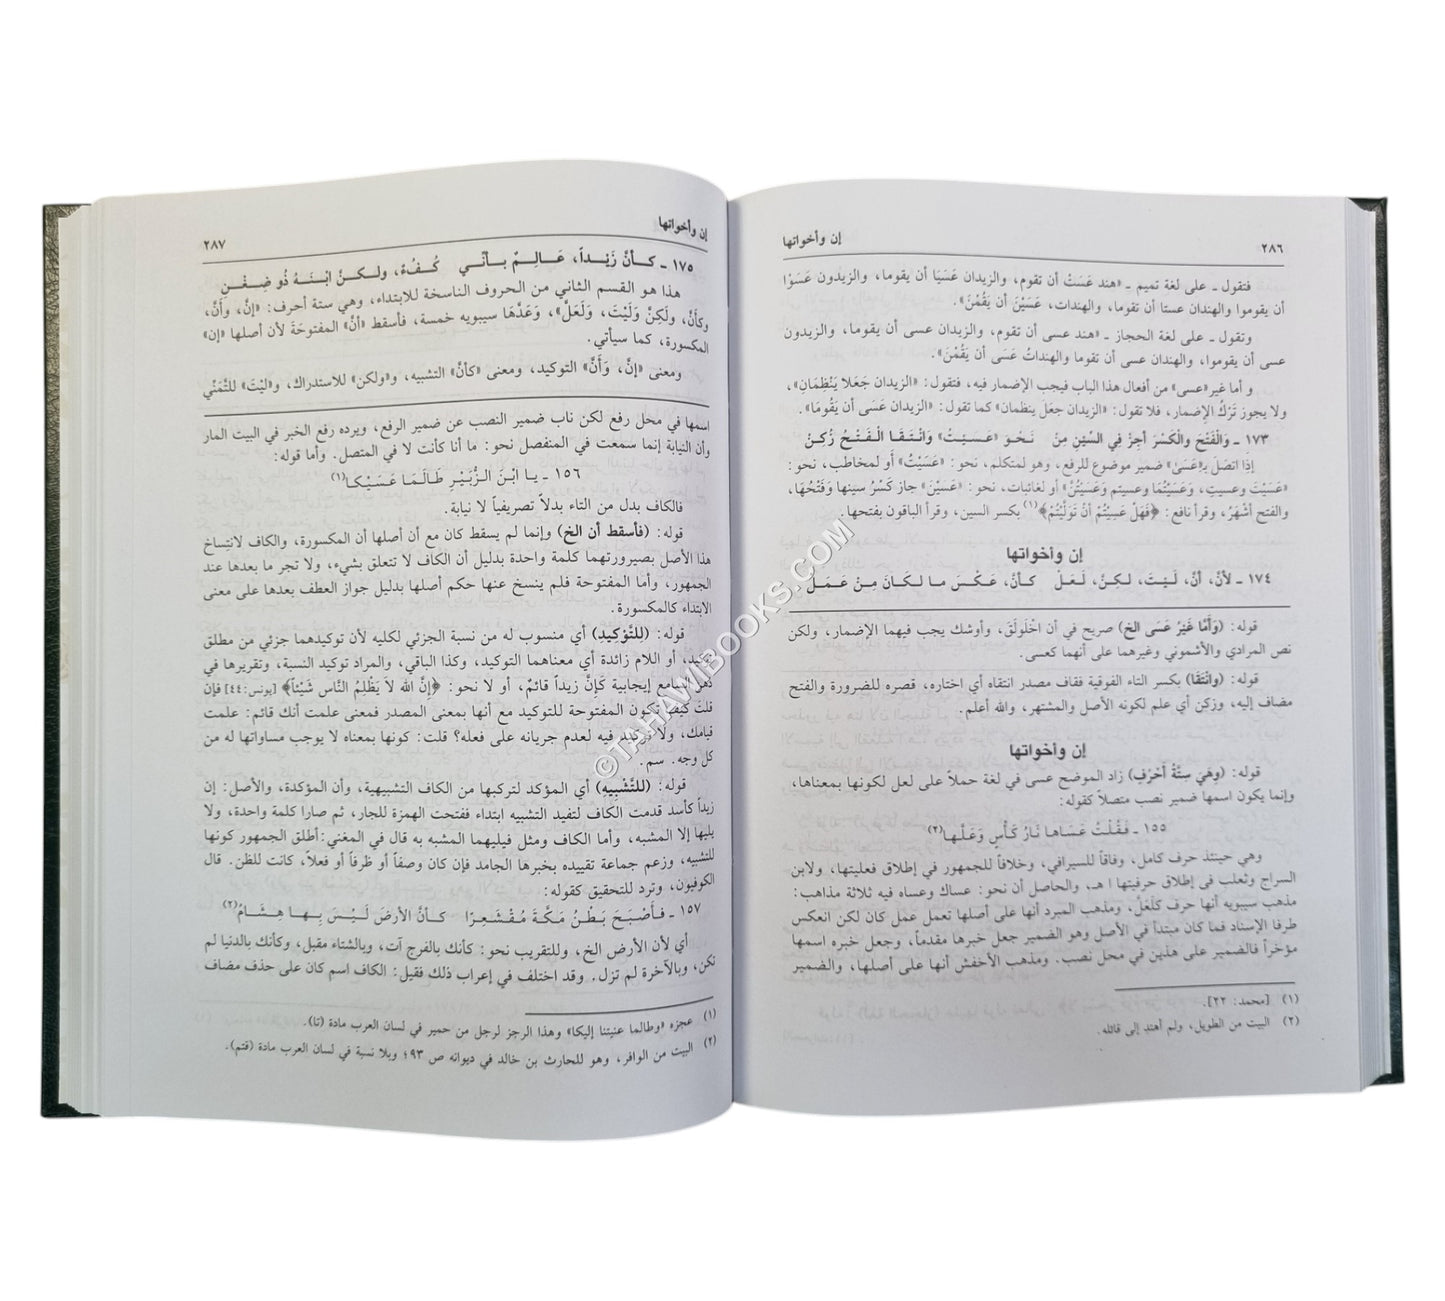 ٢٨٦
إن وأخواتها
فتقول ـ على لغة تميم ـ «هند عَسَتْ أن تقوم، والزيدان عَسَيَا أن يقوما، والزيدون عَسَوْا
أن يقوموا والهندان عستا أن تقوما، والهندات، عَسَيْنَ أن يَقُمْنَ».
وتقول ـ على لغة الحجاز ـ «هند عسى أن تقوم، والزيدان عسى أن يقوما، والزيدون
عسى أن يقوموا، والهندان عسى أن تقوما والهنداتُ عَسَى أن يَقُمْنَ».
و أما غير«عسى» من أفعال هذا الباب فيجب الإضمار فيه، فتقول: «الزيدان جَعَلا يَنْظمَانِ»،
ولا يجوز تَرْكُ الإضمار، فلا تقول: «الزيدان جعل ينظمان» كما تقول: «الزيدان عَسَى أن يَقُومَا».
١٧٣ ـ وَالْفَتْحَ وَالْكَسْرَ أَجِزْ فِي السِّينِ مِنْ نَحْوِ «عَسَيْتُ» وَانْتِقَا الْفَتْحِ زُكِنْ
إذَا اتصَلَ بـ«عَسَىٰ» ضمير موضوع للرفع، وهو لمتكلم، نحو: «عَسَيْتُ» أو لمخاطب، نحو:
«عَسَيْتَ وعسيتِ، وَعَسَيْتُمَا وعسيتم وَعَسَيْتُنَّ» أو لغائبات، نحو: «عَسَيْنَ» جاز كَسْرُ سينها وَفَتْحُهَا،
والفتح أشْهَرُ، وقرأ نافع: ﴿فَهَلْ عَسِيْتُمْ أَنْ تَوَلَّيْتُمْ﴾(١) بكسر السين، وقرأ الباقون بفتحها.
إن وأخواتها
١٧٤ ـ لأنَّ، أنَّ، لَيْتَ، لكِنَّ، لَعَلّْ كأنَّ، عَكْسُ ما لـكَانَ مِنْ عَمَلْ
قوله: (وَأَمَّا غَيْرُ عَسَى الخ) صريح في أن اخْلَوْلَقَ، وأوشك يجب فيهما الإضمار، ولكن
نص المرادي والأشموني وغيرهما على أنهما كعسى.
قوله: (وانْتِقَا) بكسر التاء الفوقية فقاف مصدر انتقاه أي اختاره، قصره للضرورة والفتح
مضاف إليه، وزكن أي علم لكونه الأصل والمشتهر، والله أعلم.
إن وأخواتها
قوله: (وهيَ سِتَّةُ أحْرُفٍ) زاد الموضح عسى في لغة حملاً على لعل لكونها بمعناها،
وإنما يكون اسمها ضمير نصب متصلاً كقوله:
١٥٥ ـ فَقُلْتُ عَسَاها نَارُ كَأْسٍ وَعَلَّها(٢)
وهي حينئذ حرف كامل، وفاقاً للسيرافي، وخلافاً للجمهور في إطلاق فعليتها، ولابن
السراج وثعلب في إطلاق حرفيتها ا هـ، والحاصل أن نحو: عساك وعساه فيه ثلاثة مذاهب:
مذهب سيبويه أنها حرف كَلَعَلَّ، ومذهب المبرد أنها على أصلها تعمل عمل كان لكن انعكس
طرفا الإسناد فما كان مبتدأ في الأصل وهو الضمير جعل خبرها مقدماً، وجعل خبره اسمها
مؤخراً فالضمير على هذين في محل نصب. ومذهب الأخفش أنها على أصلها، والضمير
(١) [محمد: ٢٢].
(٢) البيت من الطويل، ولم أهتدِ إلى قائله.
إن وأخواتها
٢٨٧
١٧٥ ـ كـأنَّ زَيْـداً، عَـالِـمٌ بـأنّي كُـفُـءٌ، ولـكـنَّ ابْـنَـهُ ذُو ضِـغْـنِ
هذا هو القسم الثاني من الحروف الناسخة للابتداء، وهي ستة أحرف: «إنَّ، وأنَّ،
وكأنَّ، ولَكِنَّ وَلَيْتَ، وَلَعَلَّ»، وَعَدَّهَا سيبويه خمسة، فأسقط «أنَّ» المفتوحَةَ لأن أصلها «إن»
المكسورة، كما سيأتي.
ومعنى «إنَّ، وَأَنَّ» التوكيد، ومعنى «كأنَّ» التشبيه، و«ولكن» للاستدراك، و«ليْتَ» للتَّمَنِّي
اسمها في محل رفع لكن ناب ضمير النصب عن ضمير الرفع، ويرده رفع الخبر في البيت المار
وأن النيابة إنما سمعت في المنفصل نحو: ما أنا كأنت لا في المتصل. وأما قوله:
١٥٦ ـ يـا ابْـنَ الـزُّبَـيْـرِ طَـالَـمَـا عَـصَـيْـكَـا(١)
فالكاف بدل من التاء بدلاً تصريفياً لا نيابة.
قوله: (فأسقط أن الخ) وإنما لم يسقط كان مع أن أصلها أن المكسورة، والكاف لانتساخ
هذا الأصل بصيرورتهما كلمة واحدة بدليل أن الكاف لا تتعلق بشيء، ولا تجر ما بعدها عند
الجمهور، وأما المفتوحة فلم ينسخ عنها حكم أصلها بدليل جواز العطف بعدها على معنى
الابتداء كالمكسورة.
قوله: (للتَّوْكِيدِ) أي منسوب له من نسبة الجزئي لكليه لأن توكيدهما جزئي من مطلق
توكيد، أو اللام زائدة أي معناهما التوكيد، وكذا الباقي، والمراد توكيد النسبة، وتقريرها في
ذهن السامع إيجابية كَإنَّ زيداً قائم، أو لا نحو: ﴿إنَّ الله لاَ يَظْلِمُ النَّاس شَيْئاً﴾ [يونس:٤٤] فإن
قلت كيف تكون المفتوحة للتوكيد مع أنها بمعنى المصدر فمعنى علمت أنك قائم: علمت
قيامك، ولا توكيد فيه لعدم جريانه على فعله؟ قلت: كونها بمعناه لا يوجب مساواتها له من
كل وجه. سم.
قوله: (للتَّشْبِيهِ) أي المؤكد لتركبها من الكاف التشبيهية، وأن المؤكدة، والأصل: إن
زيداً كأسد قدمت الكاف لتفيد التشبيه ابتداء ففتحت الهمزة للجار، ثم صارا كلمة واحدة، ولا
يليها إلا المشبه، وأما الكاف ومثل فيليهما المشبه به قال في المغني: أطلق الجمهور كونها
للتشبيه، وزعم جماعة تقييده بخبرها الجامد فإن كان وصفاً أو ظرفاً أو فعلاً، كانت للظن. قال
الكوفيون، وترد للتحقيق كقوله:
١٥٧ ـ فـأَصْـبَـحَ بَـطْـنُ مَـكَّـةَ مُـقْـشَـعِـرًّا كـأنَّ الأرضَ لَـيْـسَ بِـهـا هِـشَـامُ(٢)
أي لأن الأرض الخ، وللتقريب نحو: كأنك بالفرج آت، وبالشتاء مقبل، وكأنك بالدنيا لم
تكن، وبالآخرة لم تزل. وقد اختلف في إعراب ذلك فقيل: الكاف اسم كان على حذف مضاف
(١) عجزه «وطالما عنيتنا إليكا» وهذا الرجز لرجل من حمير في لسان العرب مادة (تا).
(٢) البيت من الوافر، وهو للحارث بن خالد في ديوانه ص ٩٣؛ وبلا نسبة في لسان العرب مادة (قثم).
©TAHAWIBOOKS.COM